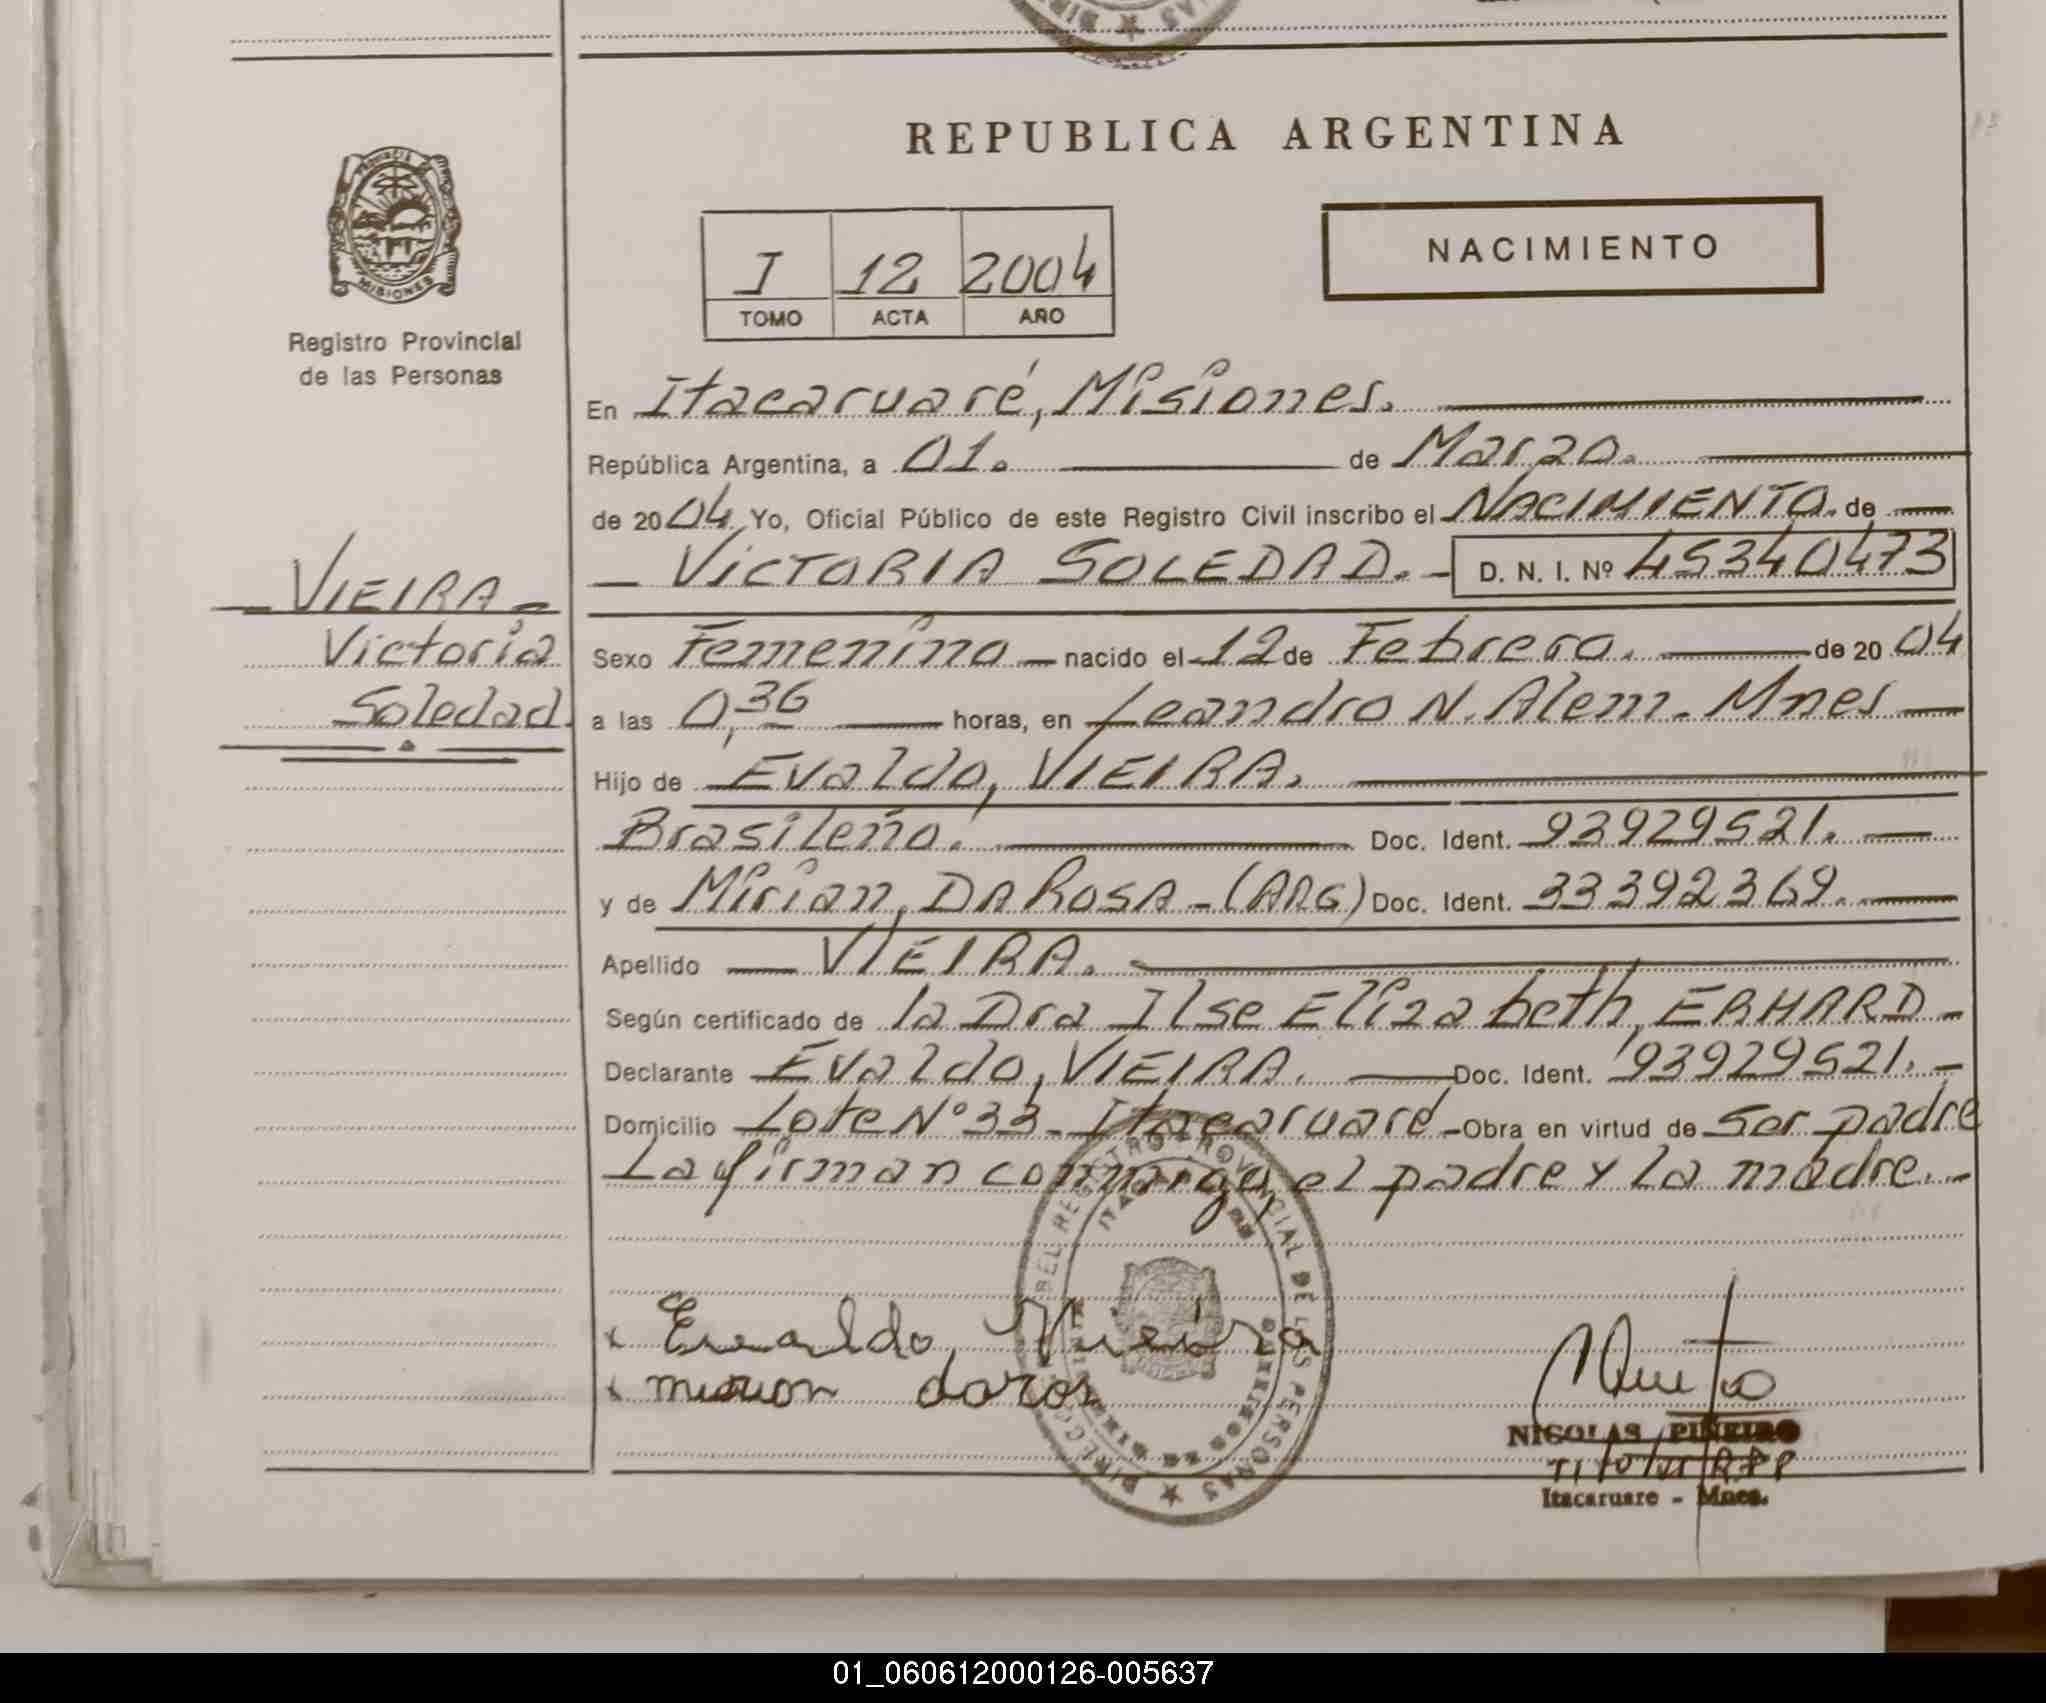 REPUBLICA ARGENTINA
PROVINCIA DE MISIONES
Registro Provincial
de las Personas
I 12 2004
TOMO ACTA AÑO
NACIMIENTO
VIEIRA
Victoria
Soledad.
En Itacaruaré, Misiones.
República Argentina, a 01. de Marzo.
de 2004 Yo, Oficial Público de este Registro Civil inscribo el NACIMIENTO. de
VICTORIA SOLEDAD. D. N. I. Nº 45340473
Sexo Femenino nacido el 12 de Febrero. de 2004
a las 0,36 horas, en Leandro N. Alem - Mnes
Hijo de Evaldo, VIEIRA.
Brasileño. Doc. Ident. 93929521.
y de Mirian, DA ROSA - (ARG) Doc. Ident. 33392369.
Apellido VIEIRA.
Según certificado de la Dra Ilse Elizabeth, ERHARD -
Declarante Evaldo, VIEIRA. Doc. Ident. 93929521. -
Domicilio Lote Nº 33 - Itacaruaré - Obra en virtud de ser padre
La firman conmigo, el padre y la madre. -
x Evaldo Vieira
x mirian daros
NICOLAS PIÑEIRO
Itacaruare - Mnes.
01_060612000126-005637